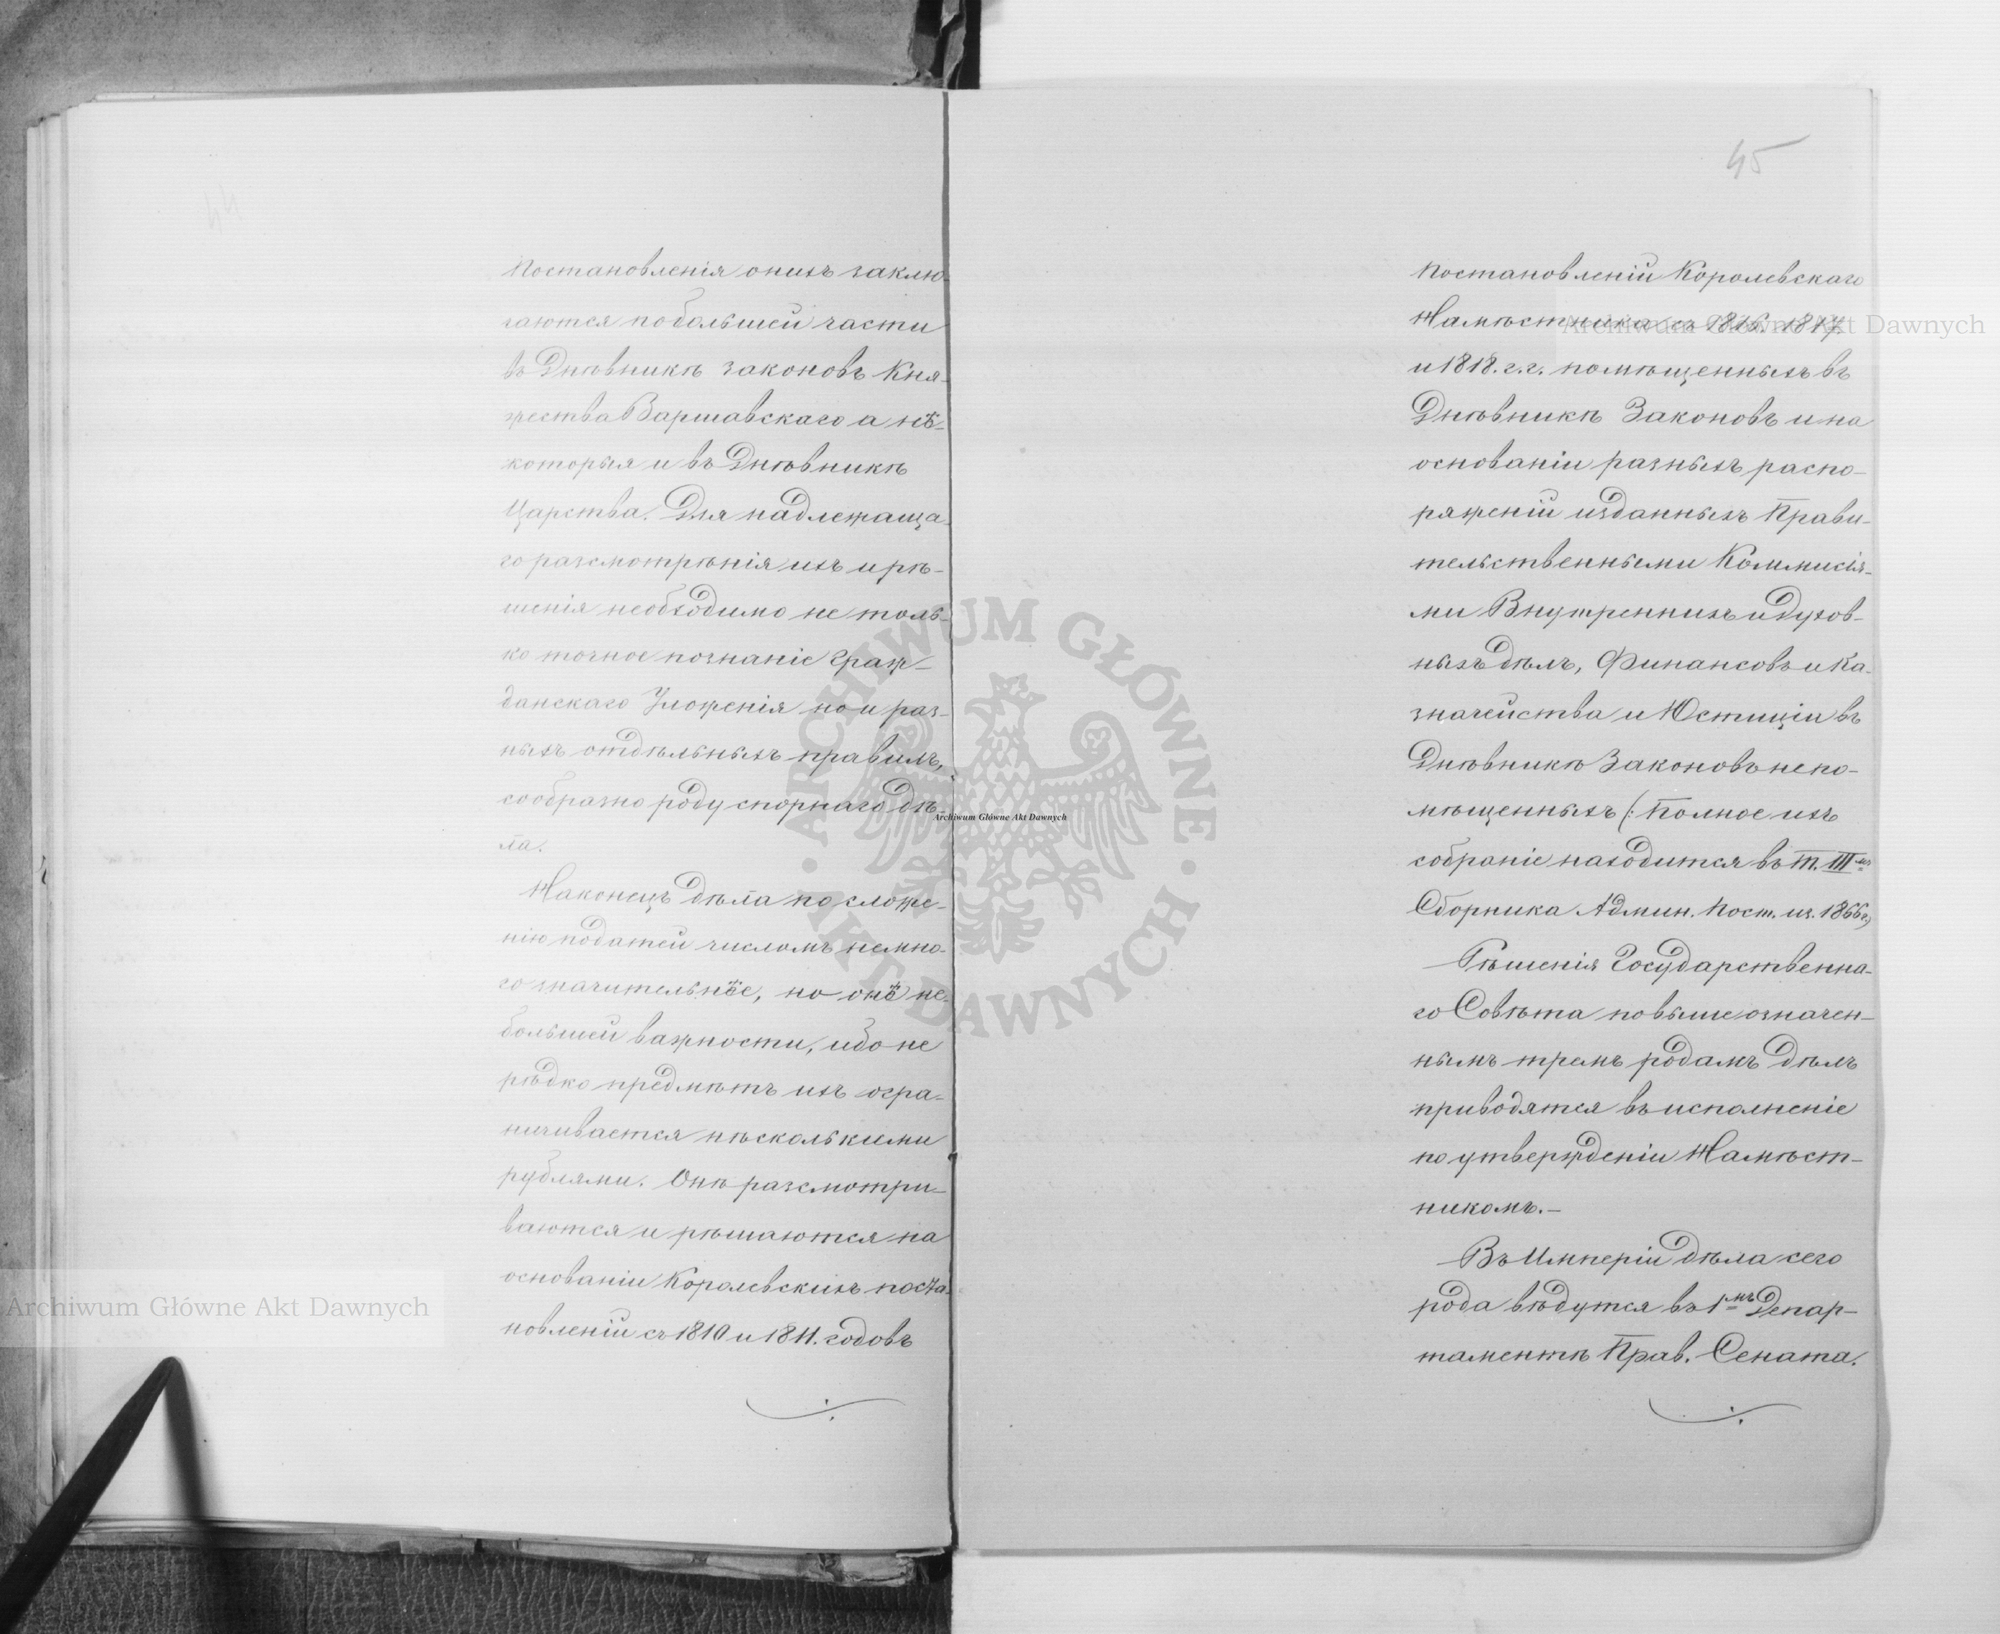 Постановленія онихъ заклю-
чаются по большей части
въ Дневникѣ законовъ Кня-
жества Варшавскаго а нѣ-
которыя и въ Дневникѣ
Царства. Для надлежаща-
го разсмотрѣнія ихъ и рѣ-
шенія необходимо не толь-
ко точное познаніе Граж-
данскаго Уложенія но и раз-
ныхъ отдѣльныхъ правилъ,
сообразно роду спорнаго дѣ-
ла.
Наконецъ дѣла по сложе-
нію податей числомъ немно-
го значительнѣе, но онѣ не-
большей важности, ибо не
рѣдко предметъ ихъ огра-
ничивается нѣсколькими
рублями. Онѣ разсмотри-
ваются и рѣшаются на
основаніи Королевскихъ поста-
новленій съ 1810 и 1811. годовъ
45
постановленій Королевскаго
Намѣстника съ 1816. 1817.
и 1818. г.г. помѣщенныхъ въ
Днѣвникѣ Законовъ и на
основаніи разныхъ распо-
ряженій изданныхъ Прави-
тельственными Коммисія-
ми Внутреннихъ и Духов-
ныхъ дѣлъ, Финансовъ и Ка-
значейства и Юстиціи въ
Днѣвникѣ Законовъ непо-
мѣщенныхъ (: Полное ихъ
собраніе находится въ Т. III-мъ
Сборника Админ. Пост. из. 1866 г.)
Рѣшенія Государственна-
го Совѣта по выше означен-
нымъ тремъ родамъ дѣлъ
приводятся въ исполненіе
по утвержденіи Намѣст-
никомъ.—
Въ Имперіи дѣла сего
рода вѣдутся въ 1-мъ Депар-
таментѣ Прав. Сената.
Archiwum Główne Akt Dawnych
Archiwum Główne Akt Dawnych
Archiwum Główne Akt Dawnych
ARCHIWUM GŁÓWNE AKT DAWNYCH